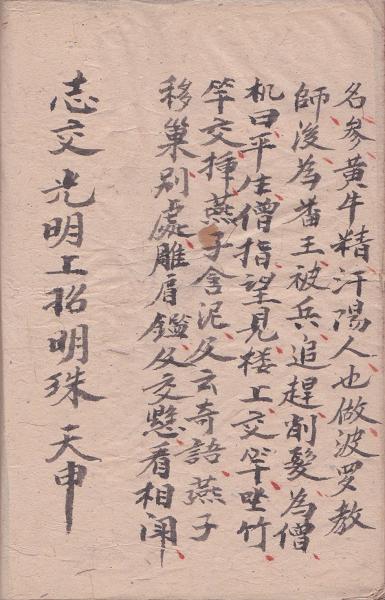 名参黄牛精汗陽人也做波罗教
師後為畨王被兵追趕削髮為僧
机曰平生僧指望見楼上交竿坐竹
竿交揷燕子含泥又云奇語燕子
移巢别處雕眉鑑又交懸看相闻
志交光明上招明珠天申